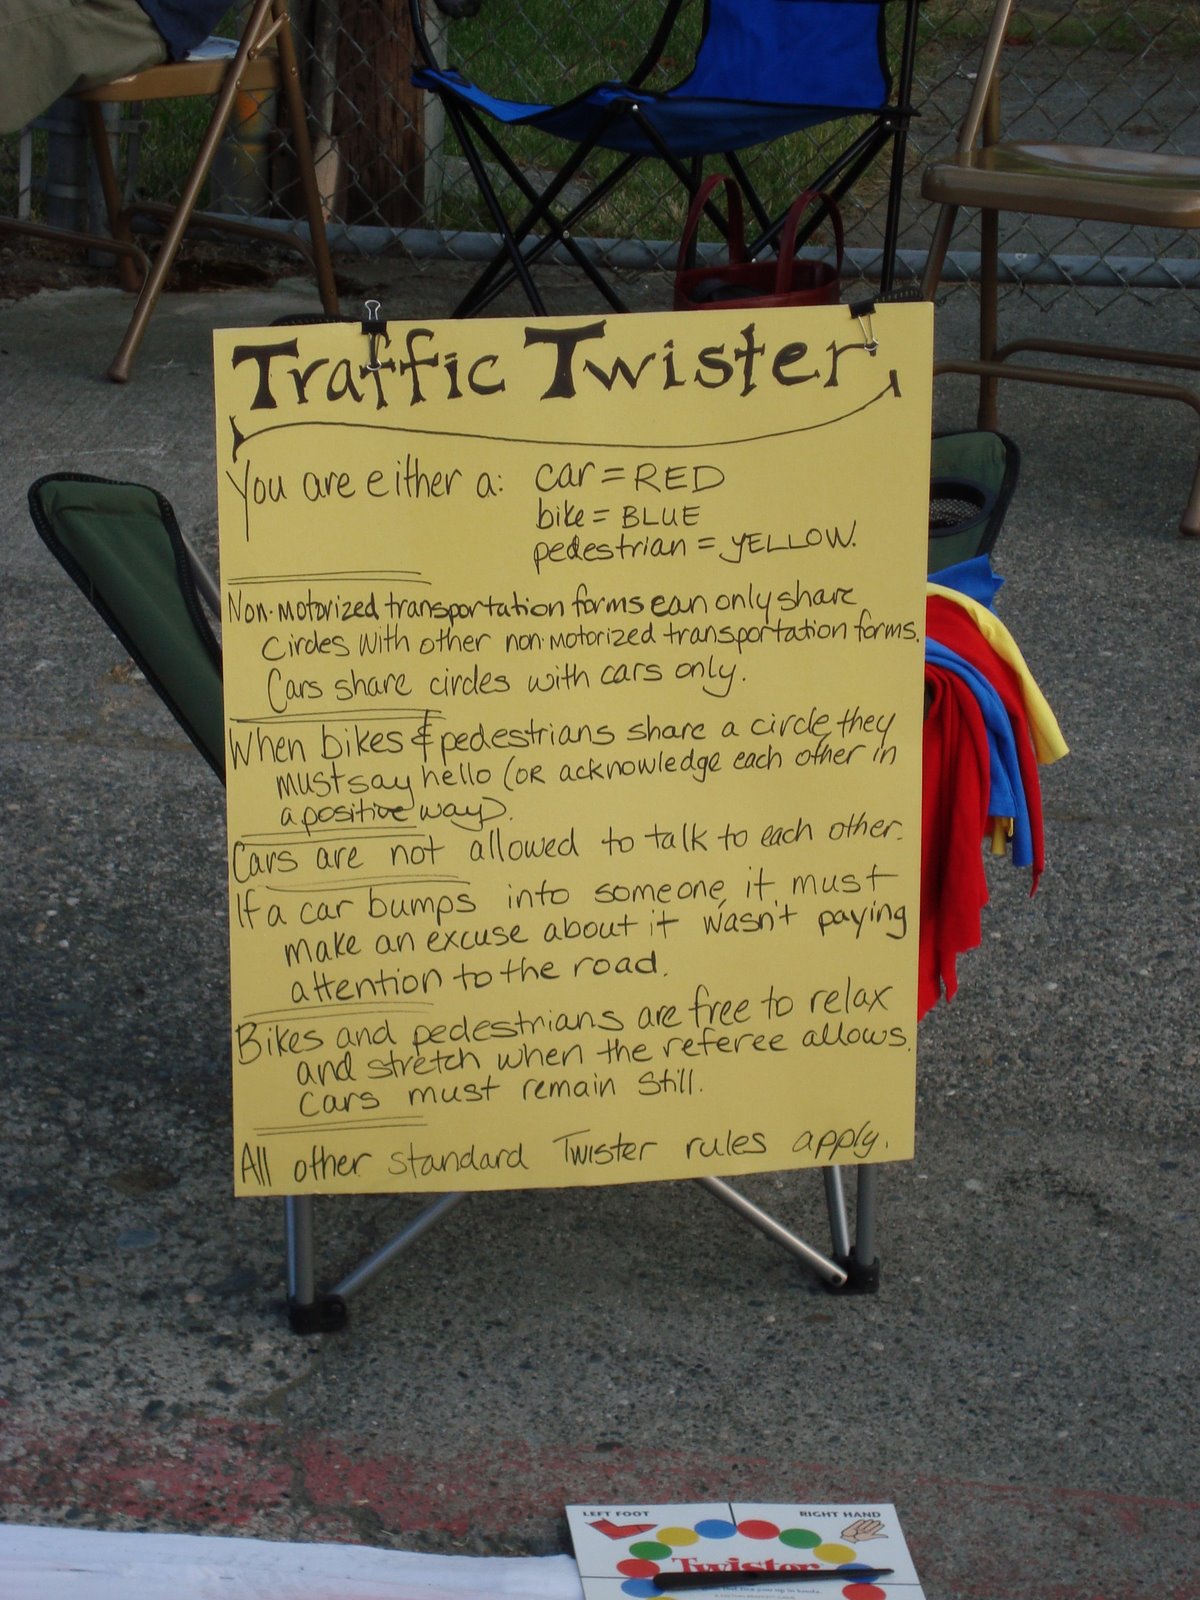 Traffic Twister
You are either a: car = RED
bike = BLUE
pedestrian = YELLOW.
Non-motorized transportation forms can only share
circles with other non-motorized transportation forms.
Cars share circles with cars only.
When bikes & pedestrians share a circle, they
must say hello (or acknowledge each other in
a positive way).
Cars are not allowed to talk to each other.
If a car bumps into someone, it must
make an excuse about it wasn't paying
attention to the road.
Bikes and pedestrians are free to relax
and stretch when the referee allows.
Cars must remain still.
All other standard Twister rules apply.
LEFT FOOT
RIGHT HAND
Twister